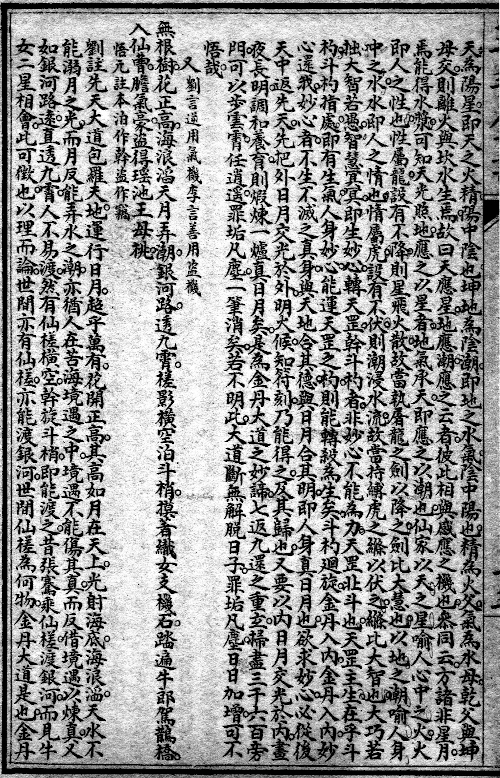 天為陽星即天之火精陽中陰也坤地為陰潮即地之水氣陰中陽也精為火父氣為水母乾父與坤
母交則離火與坎水生焉故曰天應星地應潮應之云者彼此相與感應之機也參同云方諸非星月
焉能得水漿可知天光照地應之以星者地氣承天即應之以潮也仙家以天之星喻人心中之火火
即人之性也性屬龍設有不降則星飛火散故當執屠龍之劍以降之劍比大慧也以地之潮喻人身
中之水水即人之情也情屬虎設有不伏則潮浸水流故當持縛虎之縧以伏之縧比大智也大巧若
拙大智若愚智慧冥冥即生妙心轉天罡斡斗杓者非妙心不能為力天罡北斗也天罡主生在乎斗
杓斗杓指處即有生氣人身妙心能運天罡之杓則能轉殺為生矣斗杓迴旋金丹入內金丹入內妙
心還我妙心者不生不滅之真身與天地合其德與日月合其明即人身真日月也欲求妙心必從後
天中返先天先把外日月交光於外明火候知符刻乃能得之及其歸也又要以內日月交光於內晝
夜長明調和養育則煅煉一爐真日月矣是為金丹大道之妙諦七返九還之重玄掃盡三千六百旁
門可以步雲霄任逍遙罪垢凡塵一筆消矣若不明此大道斷無解脫日子罪垢凡塵日日加增可不
悟哉
又 劉言運用氣機李言善用盜機
無根樹花正高海浪滔天月弄潮銀河路透九霄槎影橫空泊斗梢摸著織女支機石踏遍牛郎駕鵲橋
入仙曹膽氣豪盜得瑤池王母桃
悟元註本泊作斡盜作竊
劉註先天大道包羅天地運行日月超乎萬有花開正高其高如月在天上光射海底海浪滔天水不
能溺月之光而月反能弄水之潮亦猶人在苦海境遇之中境遇不能傷其真而反借境遇以煉真又
如銀河路遠直透九霄人不易渡然有仙槎橫空斡旋斗梢即能渡之昔張騫乘仙槎渡銀河而見牛
女二星相會此可徵也以理而論世間亦有仙槎亦能渡銀河世間仙槎為何物金丹大道是也金丹